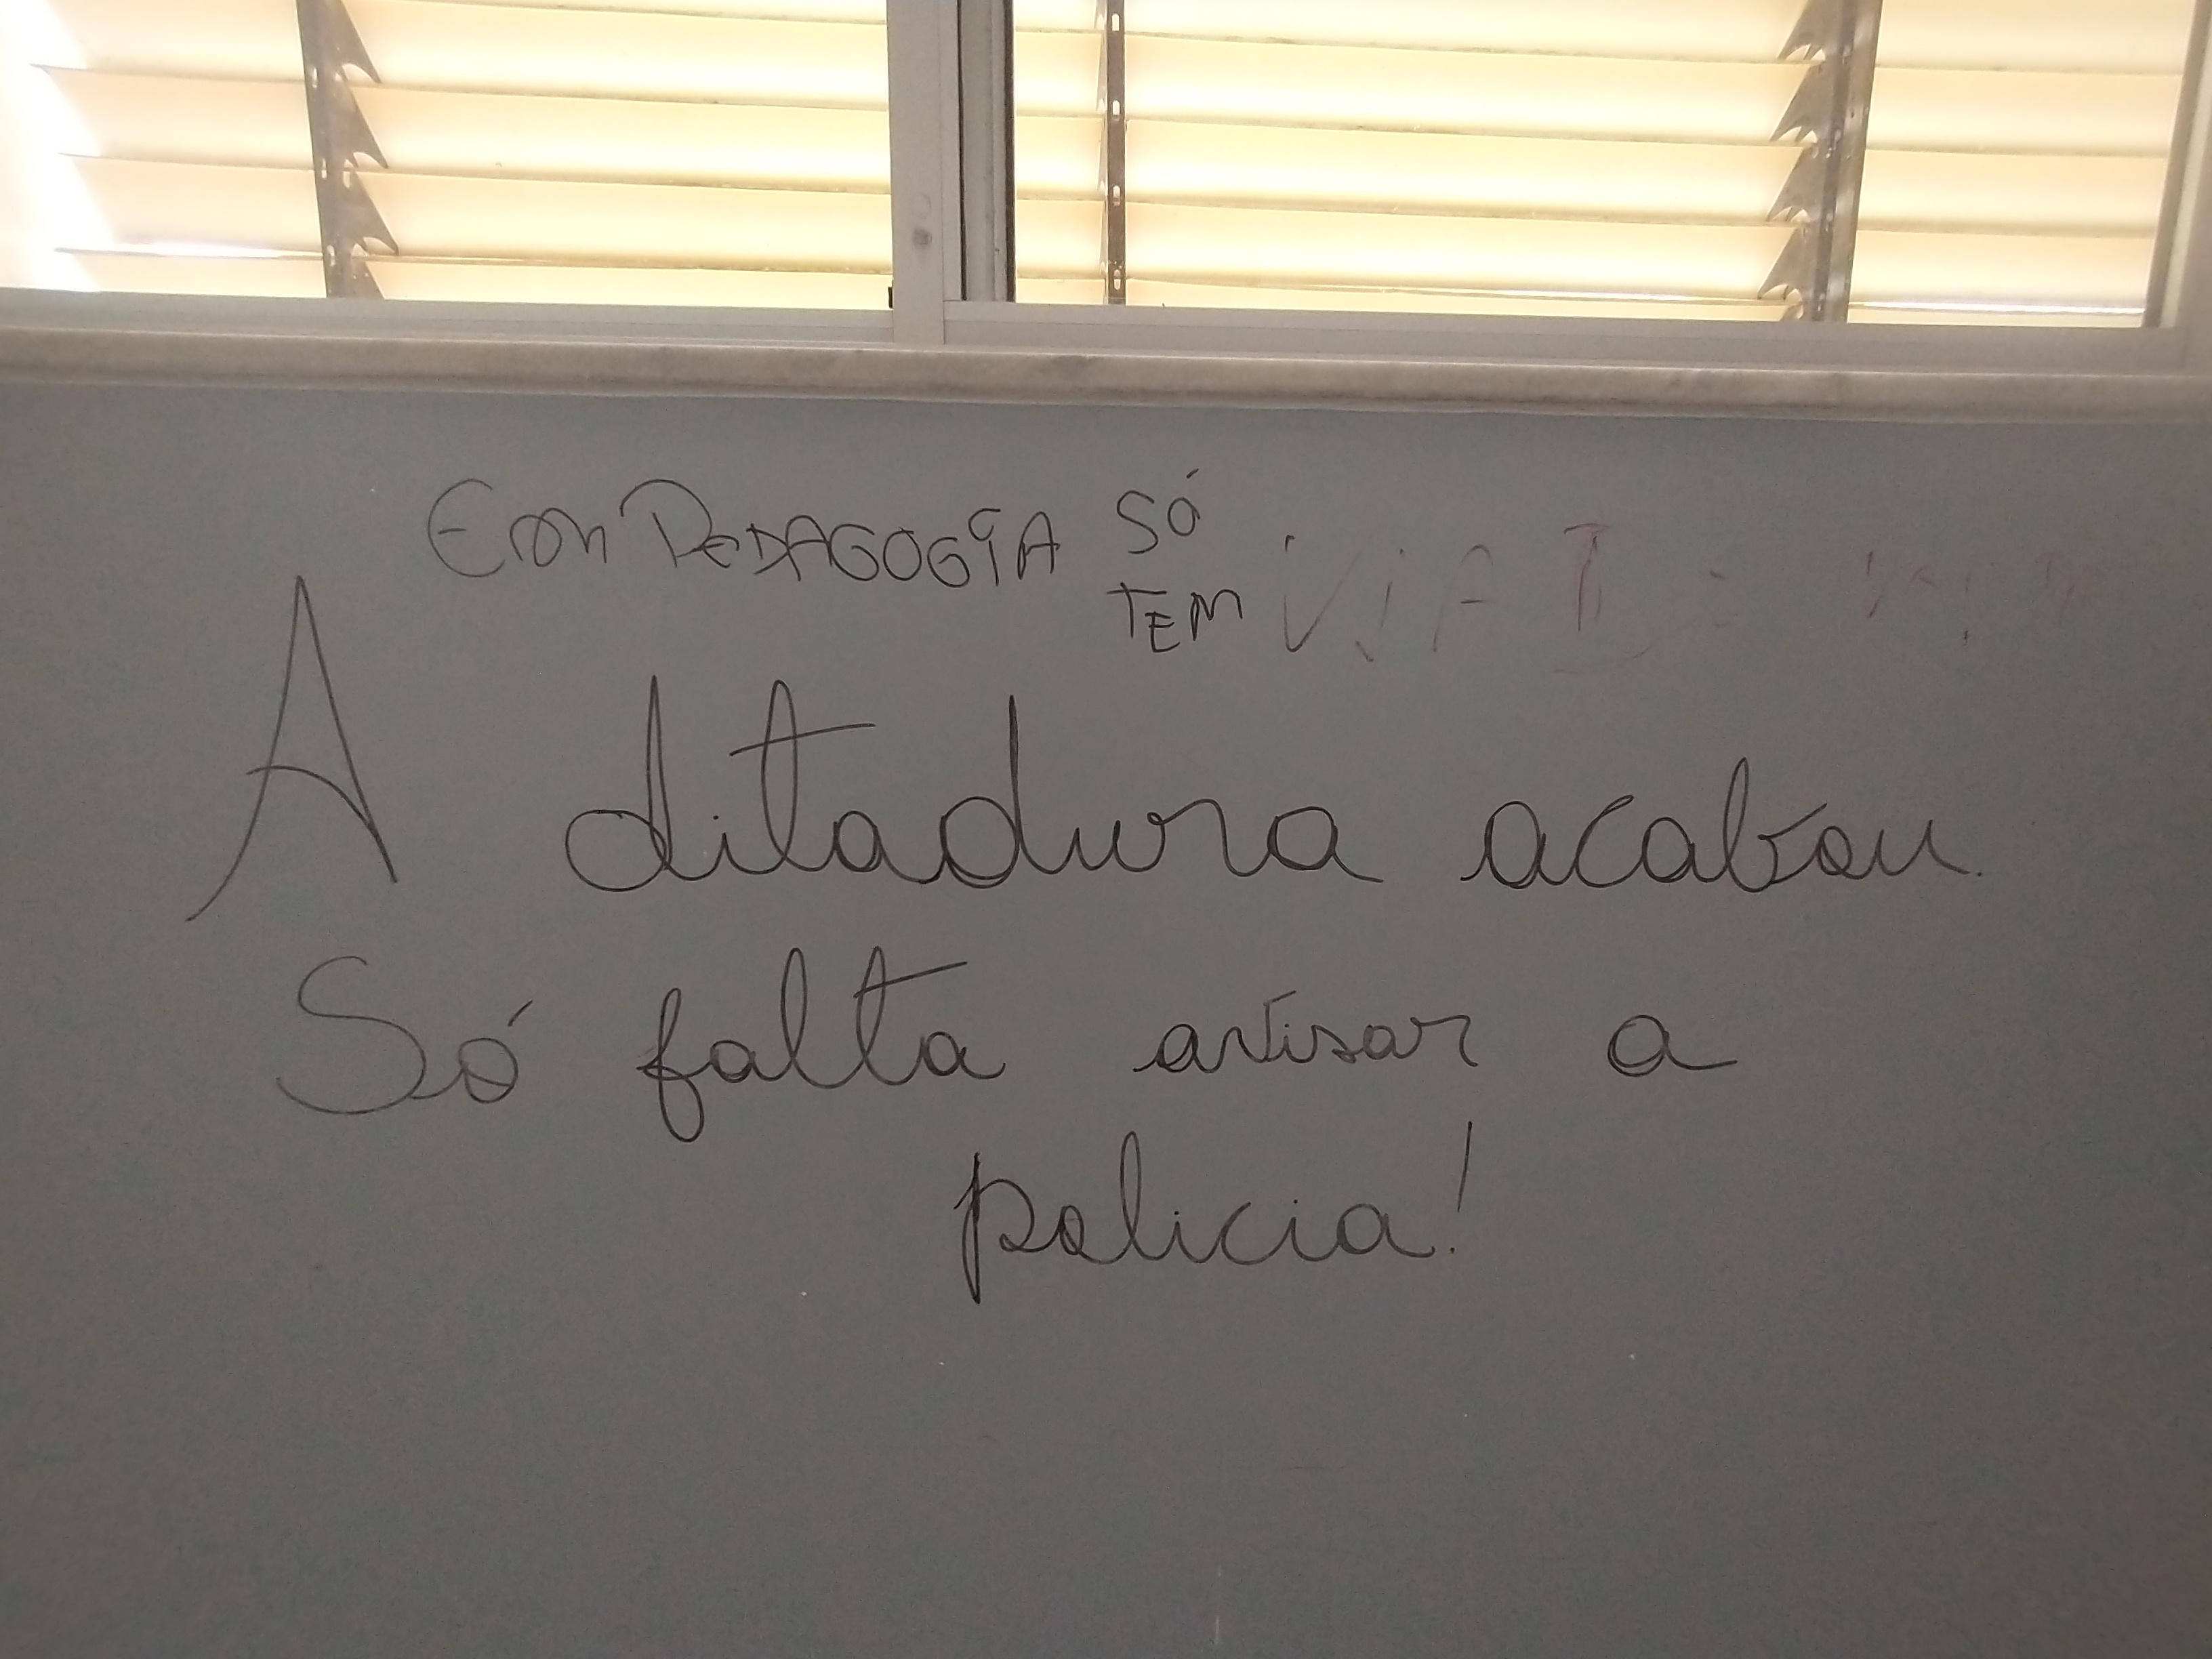 PEDAGOGIA SÓ
TEM
A ditadura acabou
Só falta avisar a
policia!